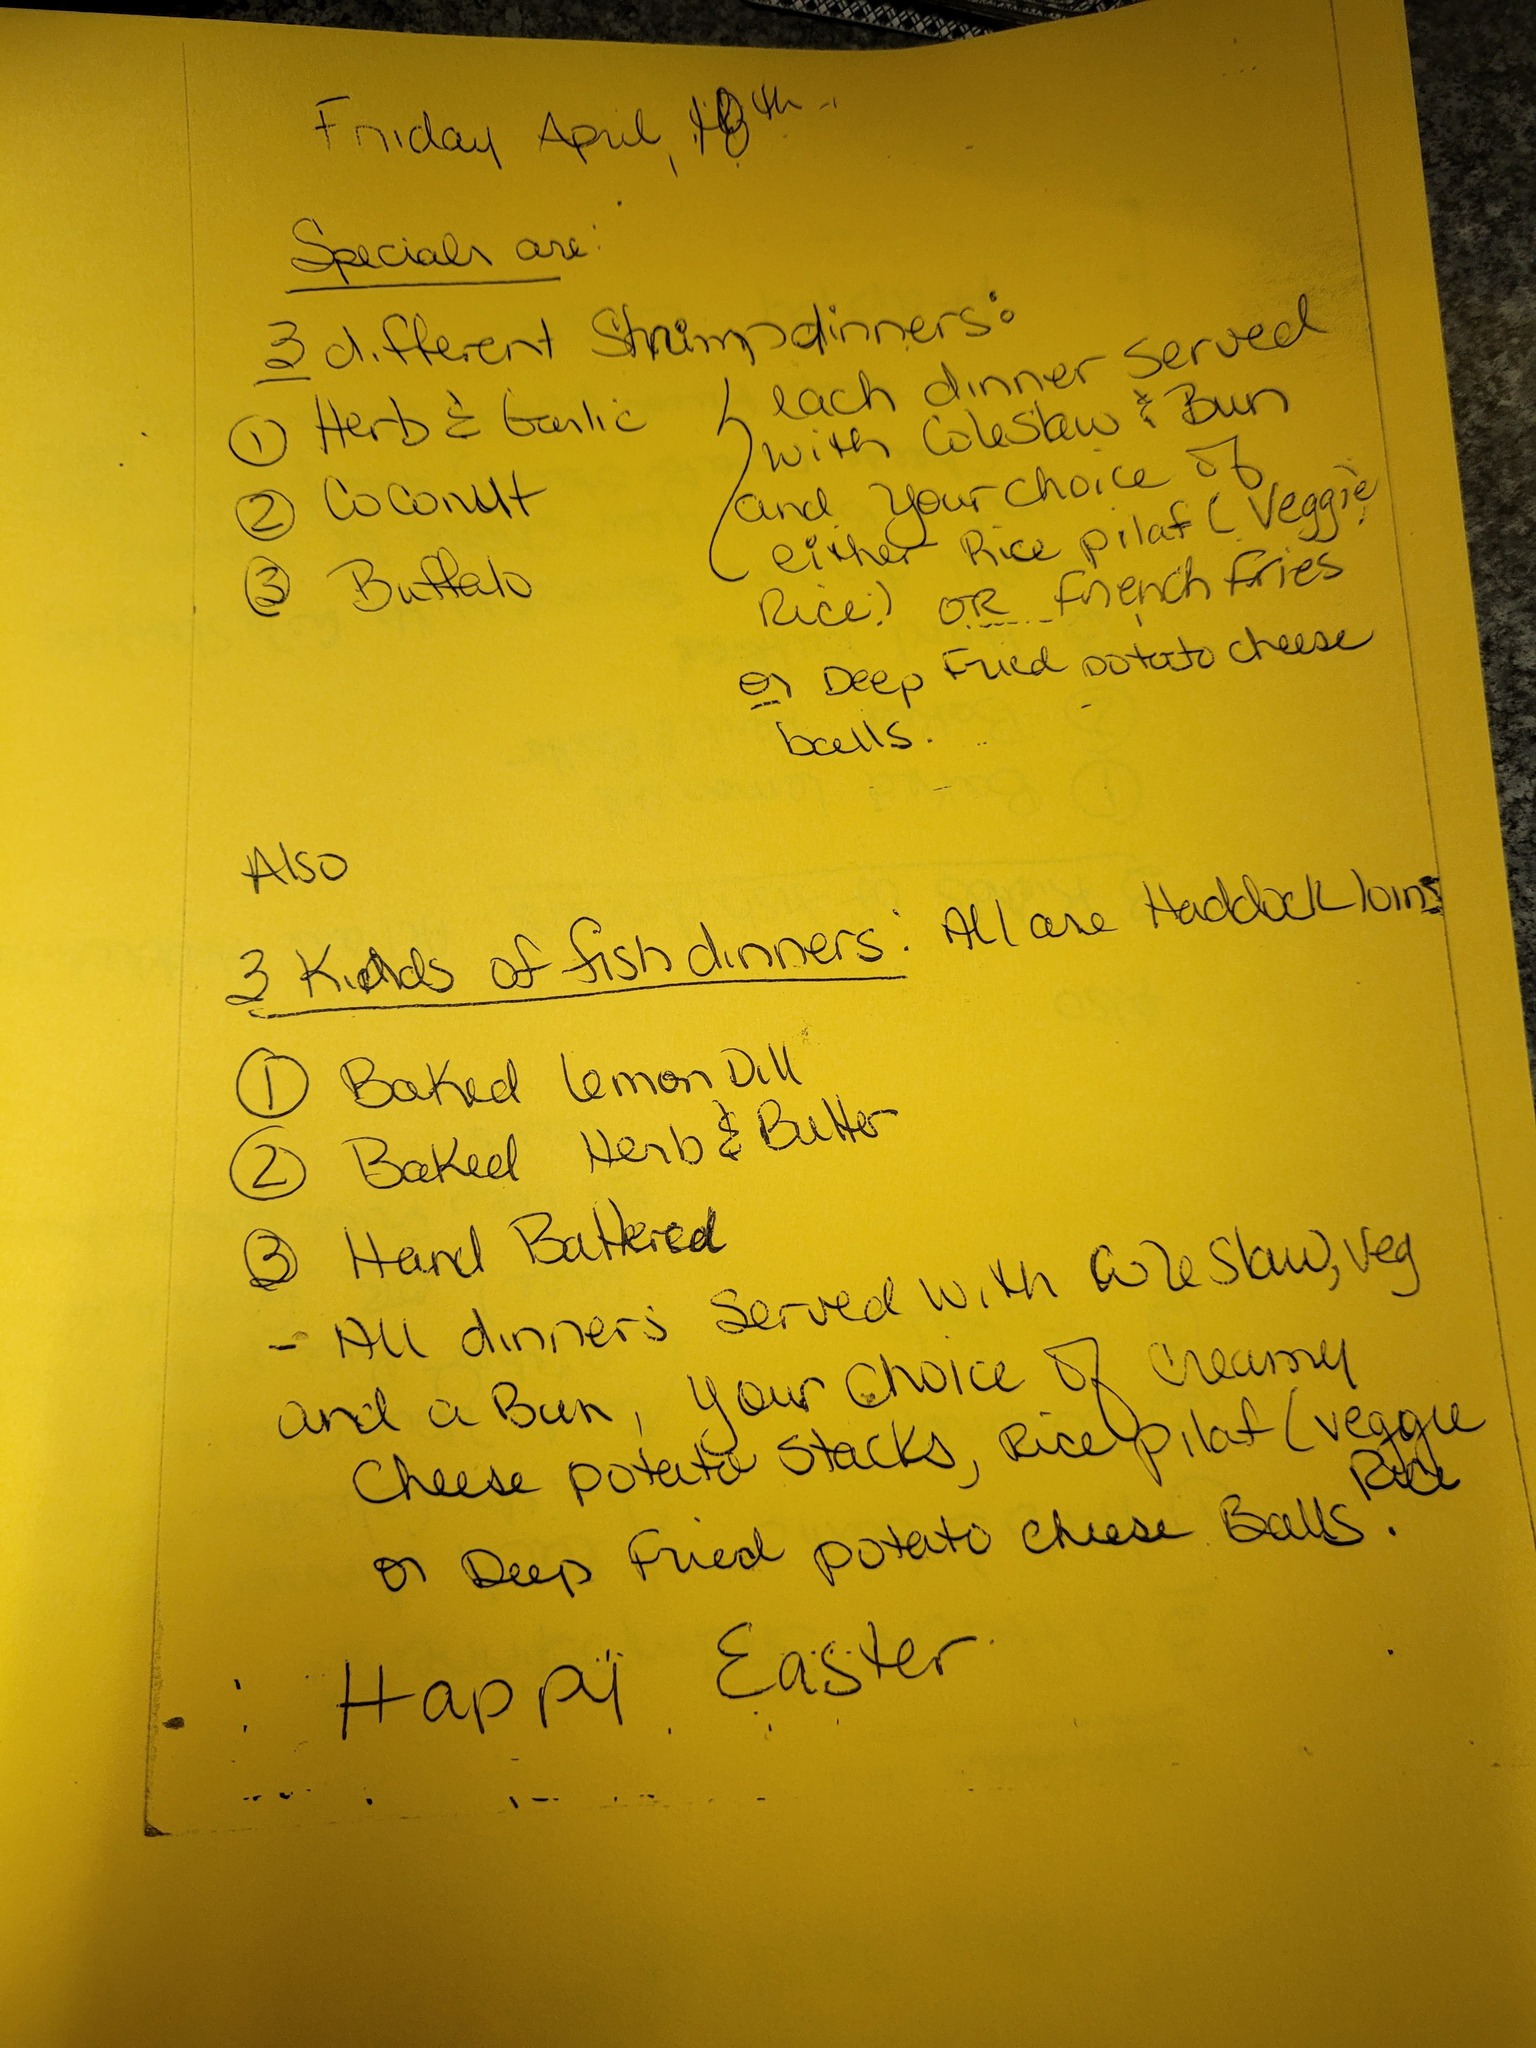 Friday April, 18th
Specials are:
3 different Shrimp dinners:
① Herb & Garlic
② Coconut
③ Buffalo
each dinner served
with Coleslaw & Bun
and your choice of
either Rice pilaf (Veggie
Rice) OR french fries
or Deep Fried potato cheese
balls.
Also
3 Kinds of fish dinners: All are Haddock loins
① Baked Lemon Dill
② Baked Herb & Butter
③ Hand Battered
- All dinners Served with Cole Slaw, Veg
and a Bun, your choice of creamy
Cheese potato stacks, Rice pilaf (veggie
Rice
or Deep Fried potato cheese Balls.
Happy Easter